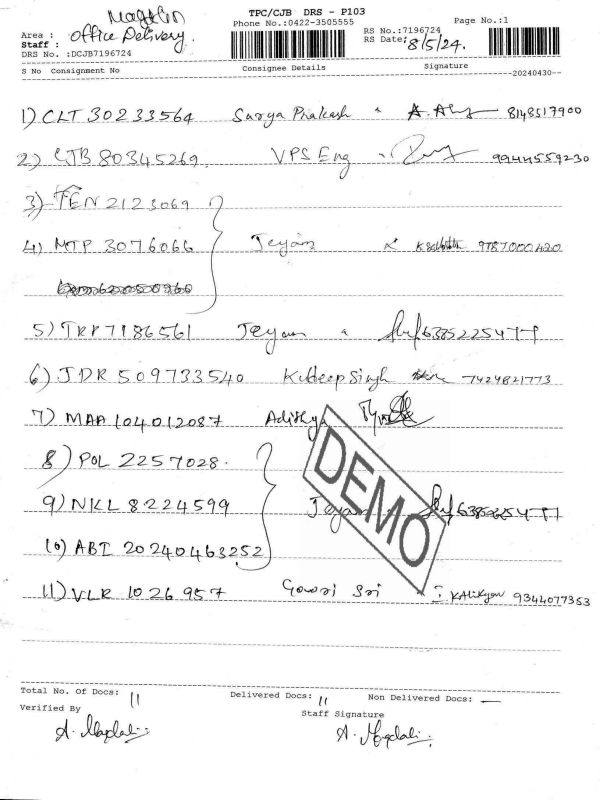 TPC/CJB DRS - P103
Magdalin
Phone No.:0422-3505555
Page No.:1
Area : office Delivery.
RS No.:7196724
Staff :
RS Date: 8/5/24.
DRS No. :DCJB7196724
S No Consignment No Consignee Details Signature
--20240430--
1) CLT 30233564 Surya Prakash 8148517900
2) CJB 80345269. VPS Eng 9944559230
3) TEN 2123069
4) MTP 3076066 Jeyam 9787000420
5) TRR7186561 Jeyam 6385225477
6) JDR 509733540 Kuldeep Singh 7424821773
7) MAA 104012087 Adithya
8) POL 2257028.
9) NKL 8224599 Jeyam 6385225477
10) ABI 20240463252
11) VLR 1026957 Gowri Sri 9344077353
DEMO
Total No. Of Docs: 11 Delivered Docs: 11 Non Delivered Docs: —
Verified By Staff Signature
A. Magdali A. Magdali